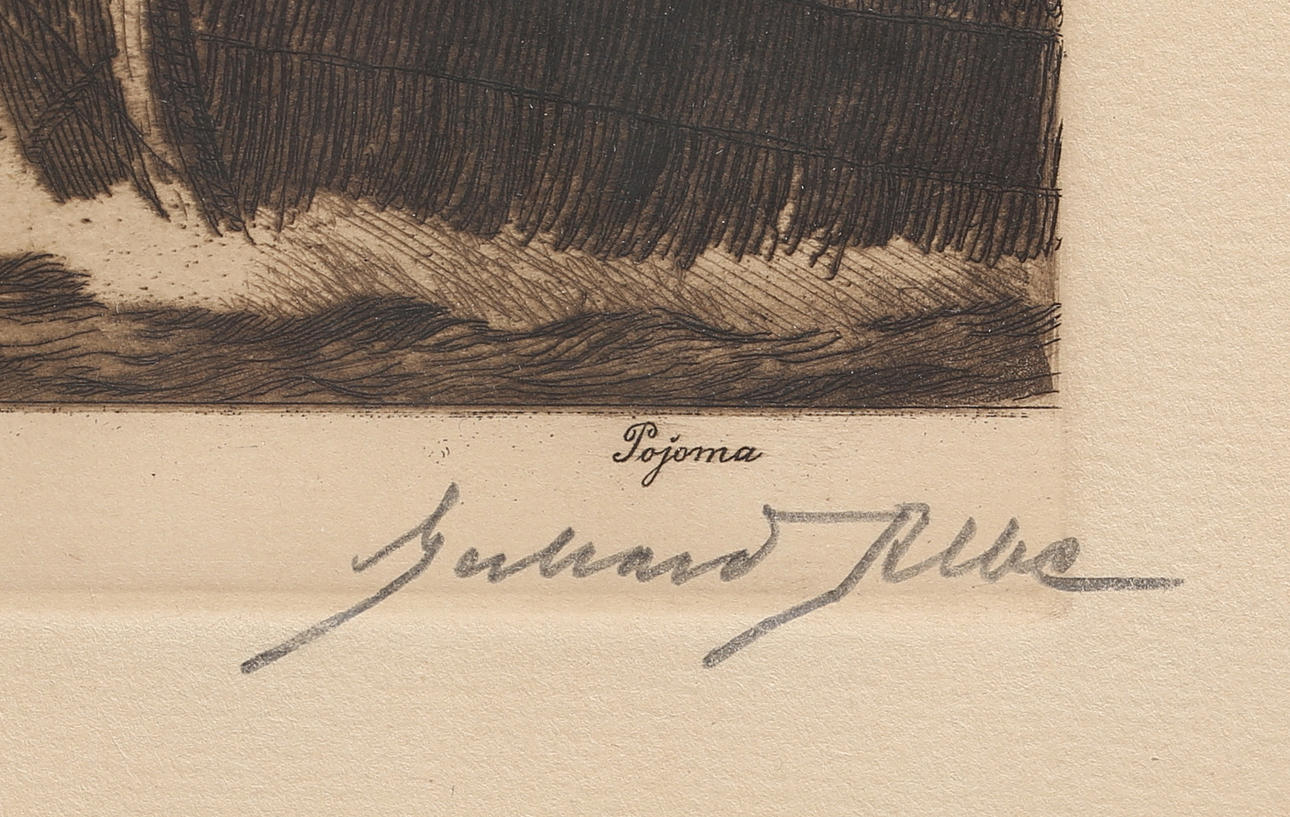 Pojoma
Gerhard Albe